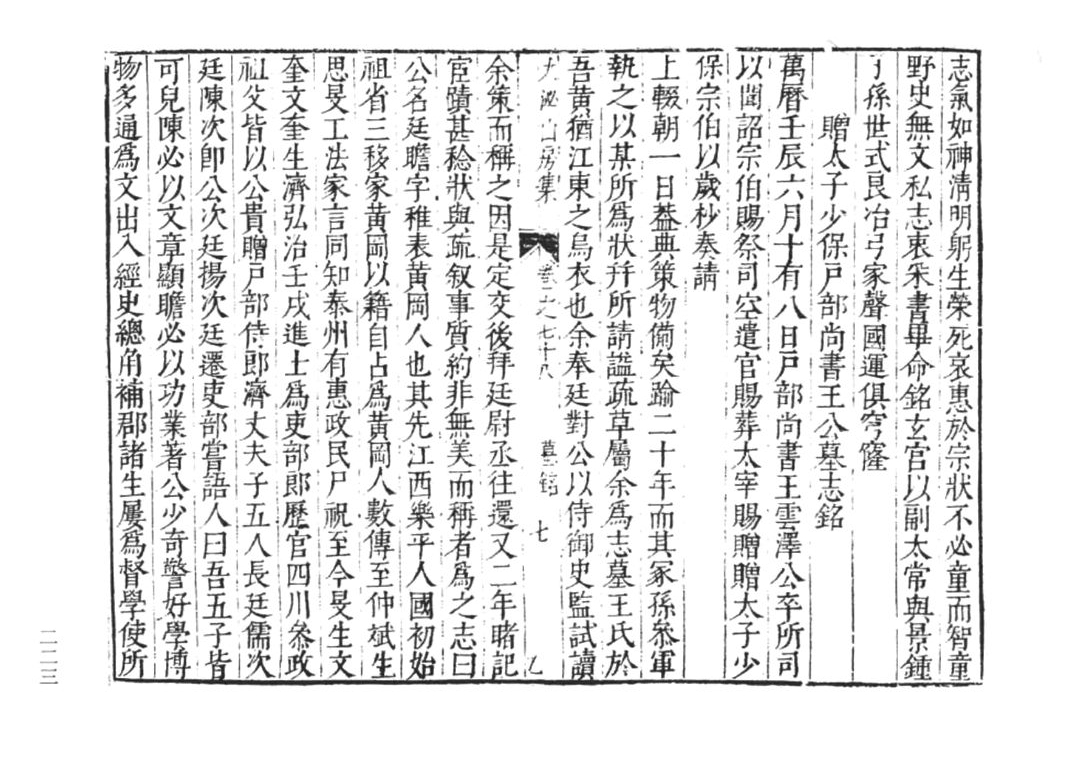 志氣如神清明躬生榮死哀惠於宗狀不必童而智童
野史無文私志衷釆書畢命銘玄宮以副太常與景鍾
子孫世式良冶弓家聲國運俱穹窿
贈太子少保戶部尚書王公墓志銘
萬曆壬辰六月十有八日戶部尚書王雲澤公卒所司
以聞詔宗伯賜祭司空遣官賜葬太宰賜贈贈太子少
保宗伯以歲杪奏請
上輟朝一日葢典策物備矣踰二十年而其冢孫叅軍
執之以某所爲狀幷所請謚疏草屬余爲志墓王氏於
吾黃猶江東之烏衣也余奉廷對公以侍御史監試讀
大泌山房集 卷之七十八 墓銘 七
余策而稱之因是定交後拜廷尉丞往還又二年睹記
宦蹟甚稔狀與疏叙事質約非無美而稱者爲之志曰
公名廷瞻字稚表黃岡人也其先江西樂平人國初始
祖省三移家黃岡以籍自占爲黃岡人數傳至仲斌生
思旻工法家言同知泰州有惠政民尸祝至今旻生文
奎文奎生濟弘治壬戌進士爲吏部郎歷官四川叅政
祖父皆以公貴贈戶部侍郎濟丈夫子五人長廷儒次
廷陳次卽公次廷揚次廷遷吏部嘗語人曰吾五子皆
可兒陳必以文章顯瞻必以功業著公少奇警好學博
物多通爲文出入經史總角補郡諸生屢爲督學使所
二二三